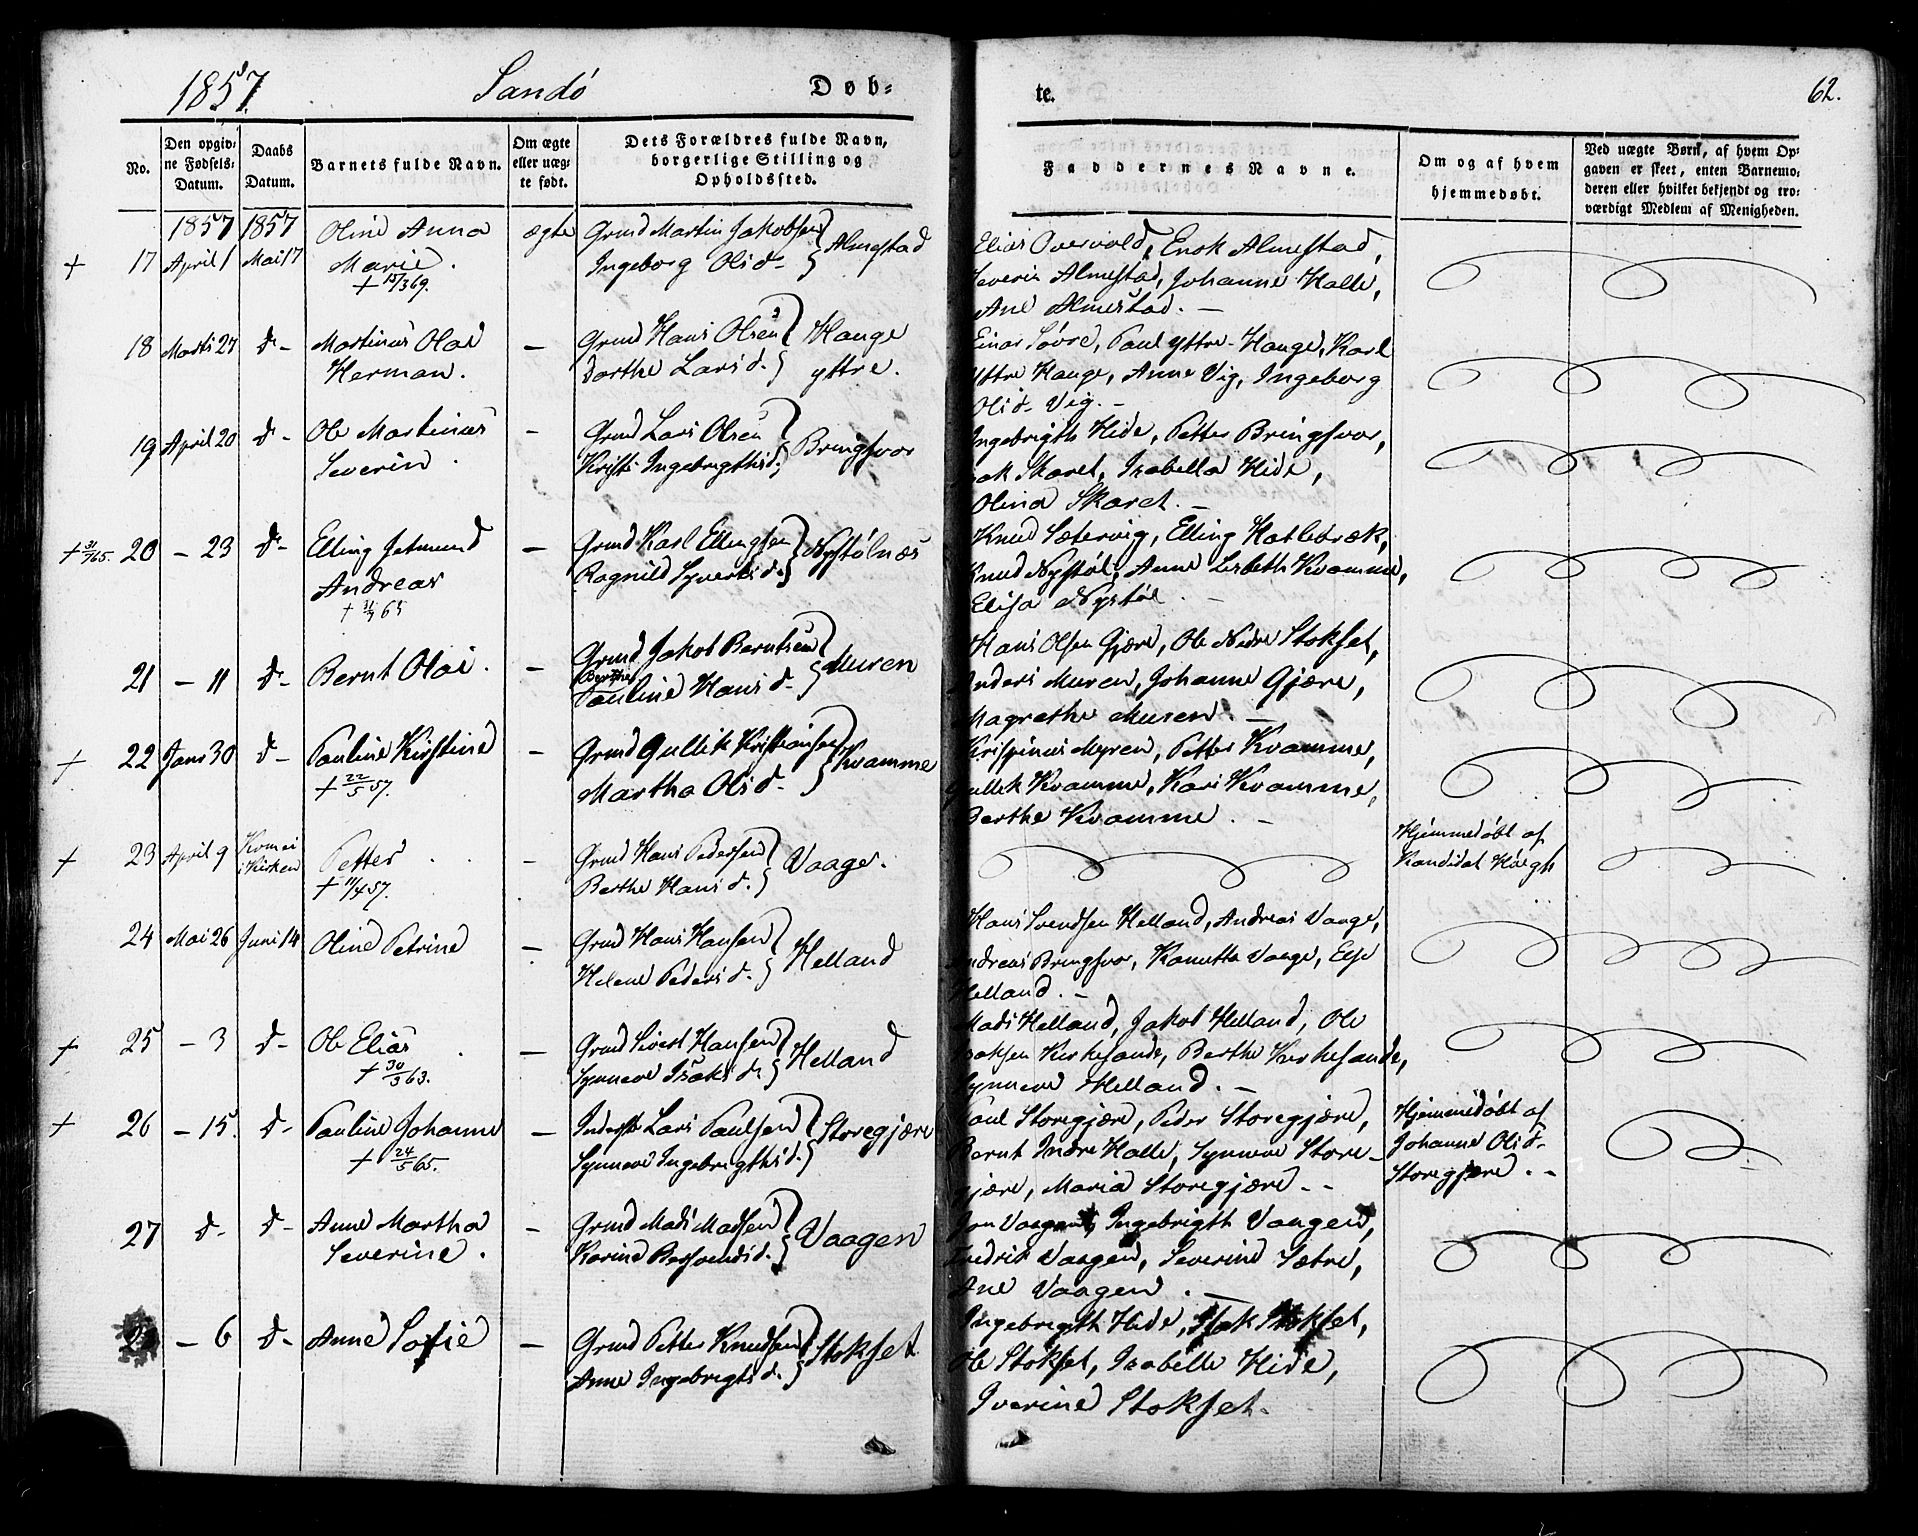 1857. Sandö Døb=
No.
Den opgiv=
ne Fødsels=
Datum.
Daabs
Datum.
Barnets fulde Navn.
Om ægte
eller uæg=
te født.
Dets Forældres fulde Navn,
borgerlige Stilling og
Opholdssted.
+ 17 1857 April 1 1857 Mai 17 Oline Anna
Marie.
+ 15/3 69.
ægte Grmd Martin Jakobsen
Ingeborg Olsd- } Almestad
18 Marts 27 d- Martinus Olai
Herman.
— Grmd Hans Olsen
Dorthe Larsd. } Hauge
yttre.
19 April 20 d- Ole Martinus
Severin.
— Grmd Lars Olsen
Kristi Ingebrigthsd. } Bringsvor
+ 31/7 65. 20 — 23 d- Elling Jetmund
Andreas
+ 31/7 65
— Grmd Karl Ellingsen
Ragnild Syvertsd. } Nystölnæs
21 — 11 d- Bernt Olai.
— Grmd Jakob Berntsen
Berthe
Pauline Hansd- } Muren
+ 22 Janr 30 d- Pauline Kirstine
+ 22/5 57.
— Grmd Gullik Kristiansen
Martha Olsd- } Kvamme
+ 23 April 9 Kom ei
i Kirken
Petter
+ 11/4 57.
— Grmd Hans Pedersen
Berthe Hansd. } Vaage.
24 Mai 26 Juni 14 Oline Petrine
— Grmd Hans Hansen
Helene Pedersd. } Helland
+ 25 — 3 d- Ole Elias
+ 30/3 63.
— Grmd Sivert Hansen
Synneve Isaksd. } Helland
+ 26 — 15. d- Pauline Johanne
+ 24/5 65.
— Inderst Lars Paulsen
Synneve Ingebrigthsd. } Storegjære
27 d- d- Anne Martha
Severine.
— Grmd Mads Madsen
Karine Rasmusd. } Vaagen
28 — 6 d- Anne Sofie
— Grmd Petter Knudsen
Anne Ingebrigtsd. } Stokset
te. 62.
Faddernes Navne.
Om og af hvem
hjemmedøbt.
Ved uægte Børn, af hvem Op=
gaven er skeet, enten Barnemo=
deren eller hvilket bekjendt og tro=
værdigt Medlem af Menigheden.
Elias Overvold, Enok Almestad,
Severin Almestad, Johanne Halle,
Ane Almestad. —
Einar Søvre, Paul yttre-Hauge, Karl
yttre Hauge, Anne Vig, Ingeborg
Olsd- Vig. —
Ingebrigth Hide, Petter Bringsvor,
Isak Skaret, Isabella Hide,
Olina Skaret. —
Knud Sætervig, Elling Hatlebræk,
Knud Nystöl, Anne Lisbeth Kvamme,
Elisa Nystöl. —
Hans Olsen Gjære, Ole Nedre Stokset,
Anders Muren, Johanne Gjære,
Magrethe Muren. —
Krispinus Myren, Petter Kvamme,
Gullik Kvamme, Kari Kvamme,
Berthe Kvamme. —
Hjemmedöbt af
Kandidat Höegh
Hans Svendsen Helland, Andreas Vaage,
Andreas Bringsvor, Kanutta Vaage, Else
Helland. —
Mads Helland, Jakob Helland, Ole
Isaksen Kirkesande, Berthe Kirkesande,
Synneve Helland. —
Paul Storegjære, Peder Storegjære,
Bernt Indre Halle, Synneve Store-
gjære, Maria Storegjære. —
Hjemmedöbt af
Johanne Olsd-
Storegjære. —
Jon Vaagen, Ingebrigth Vaagen,
Fredrik Vaagen, Severine Sætre,
Ane Vaagen. —
Ingebrigth Hide, Isak Stokset,
Ole Stokset, Isabella Hide,
Iverine Stokset.